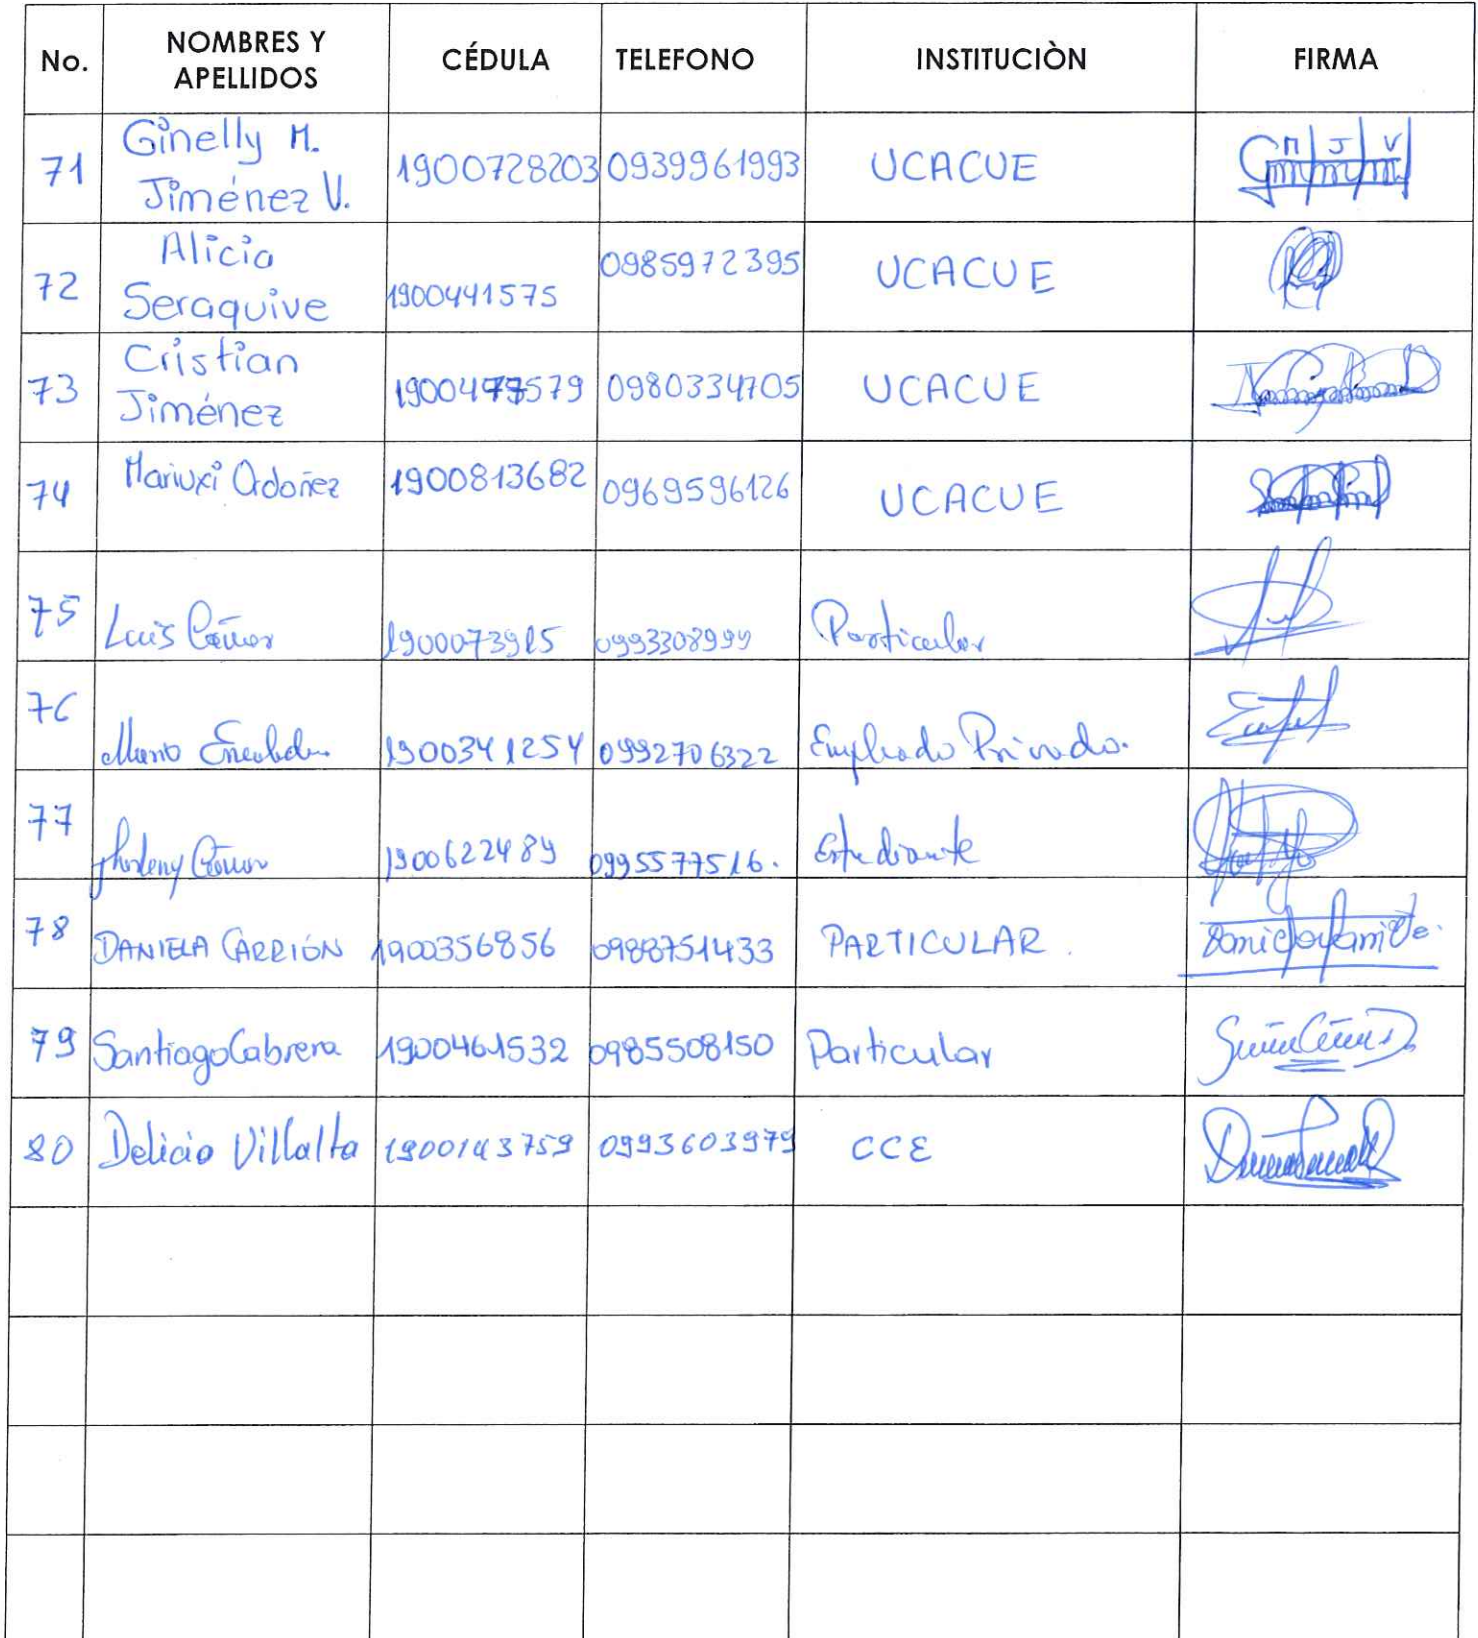 No. NOMBRES Y APELLIDOS CÉDULA TELEFONO INSTITUCIÒN FIRMA
71 Ginelly M. Jiménez V. 1900728203 0939961993 UCACUE
72 Alicia Seraquive 1900441575 0985972395 UCACUE
73 Cristian Jiménez 1900477579 0980334705 UCACUE
74 Mariuxi Ordoñez 1900813682 0969596126 UCACUE
75 Luis 1900073915 0993308999 Particular
76 1900341254 0992706322 Empleado Privado.
77 1900622489 0995577516. Estudiante
78 DANIELA CARRIÓN 1900356856 0988751433 PARTICULAR.
79 Santiago Cabrera 1900461532 0985508150 Particular
80 Delicia Villalta 1900143759 0993603979 CCE